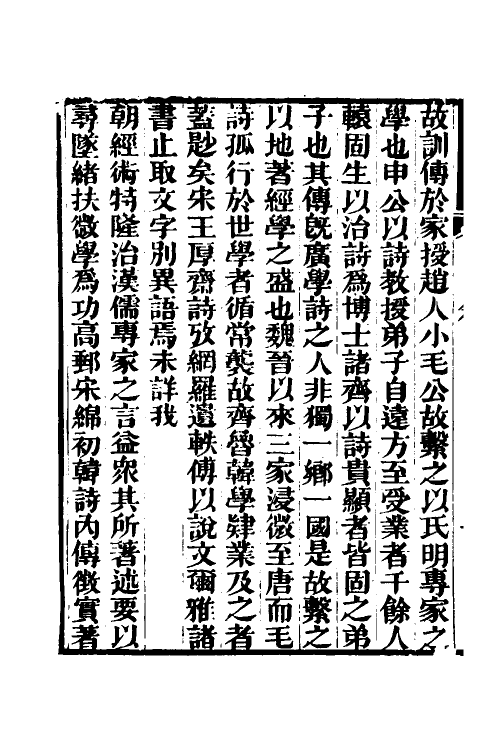 故訓傳於家授趙人小毛公故繫之以氏明專家之
學也申公以詩教授弟子自遠方至受業者千餘人
轅固生以治詩爲博士諸齊以詩貴顯者皆固之弟
子也其傳旣廣學詩之人非獨一鄉一國是故繫之
以地著經學之盛也魏晉以來三家浸微至唐而毛
詩孤行於世學者循常襲故齊魯韓學肄業及之者
葢尟矣宋王厚齋詩攷網羅遺軼傅以說文爾雅諸
書止取文字別異語焉未詳我
朝經術特隆治漢儒專家之言益衆其所著述要以
尋墜緒扶微學爲功高郵宋綿初韓詩內傳徵實著